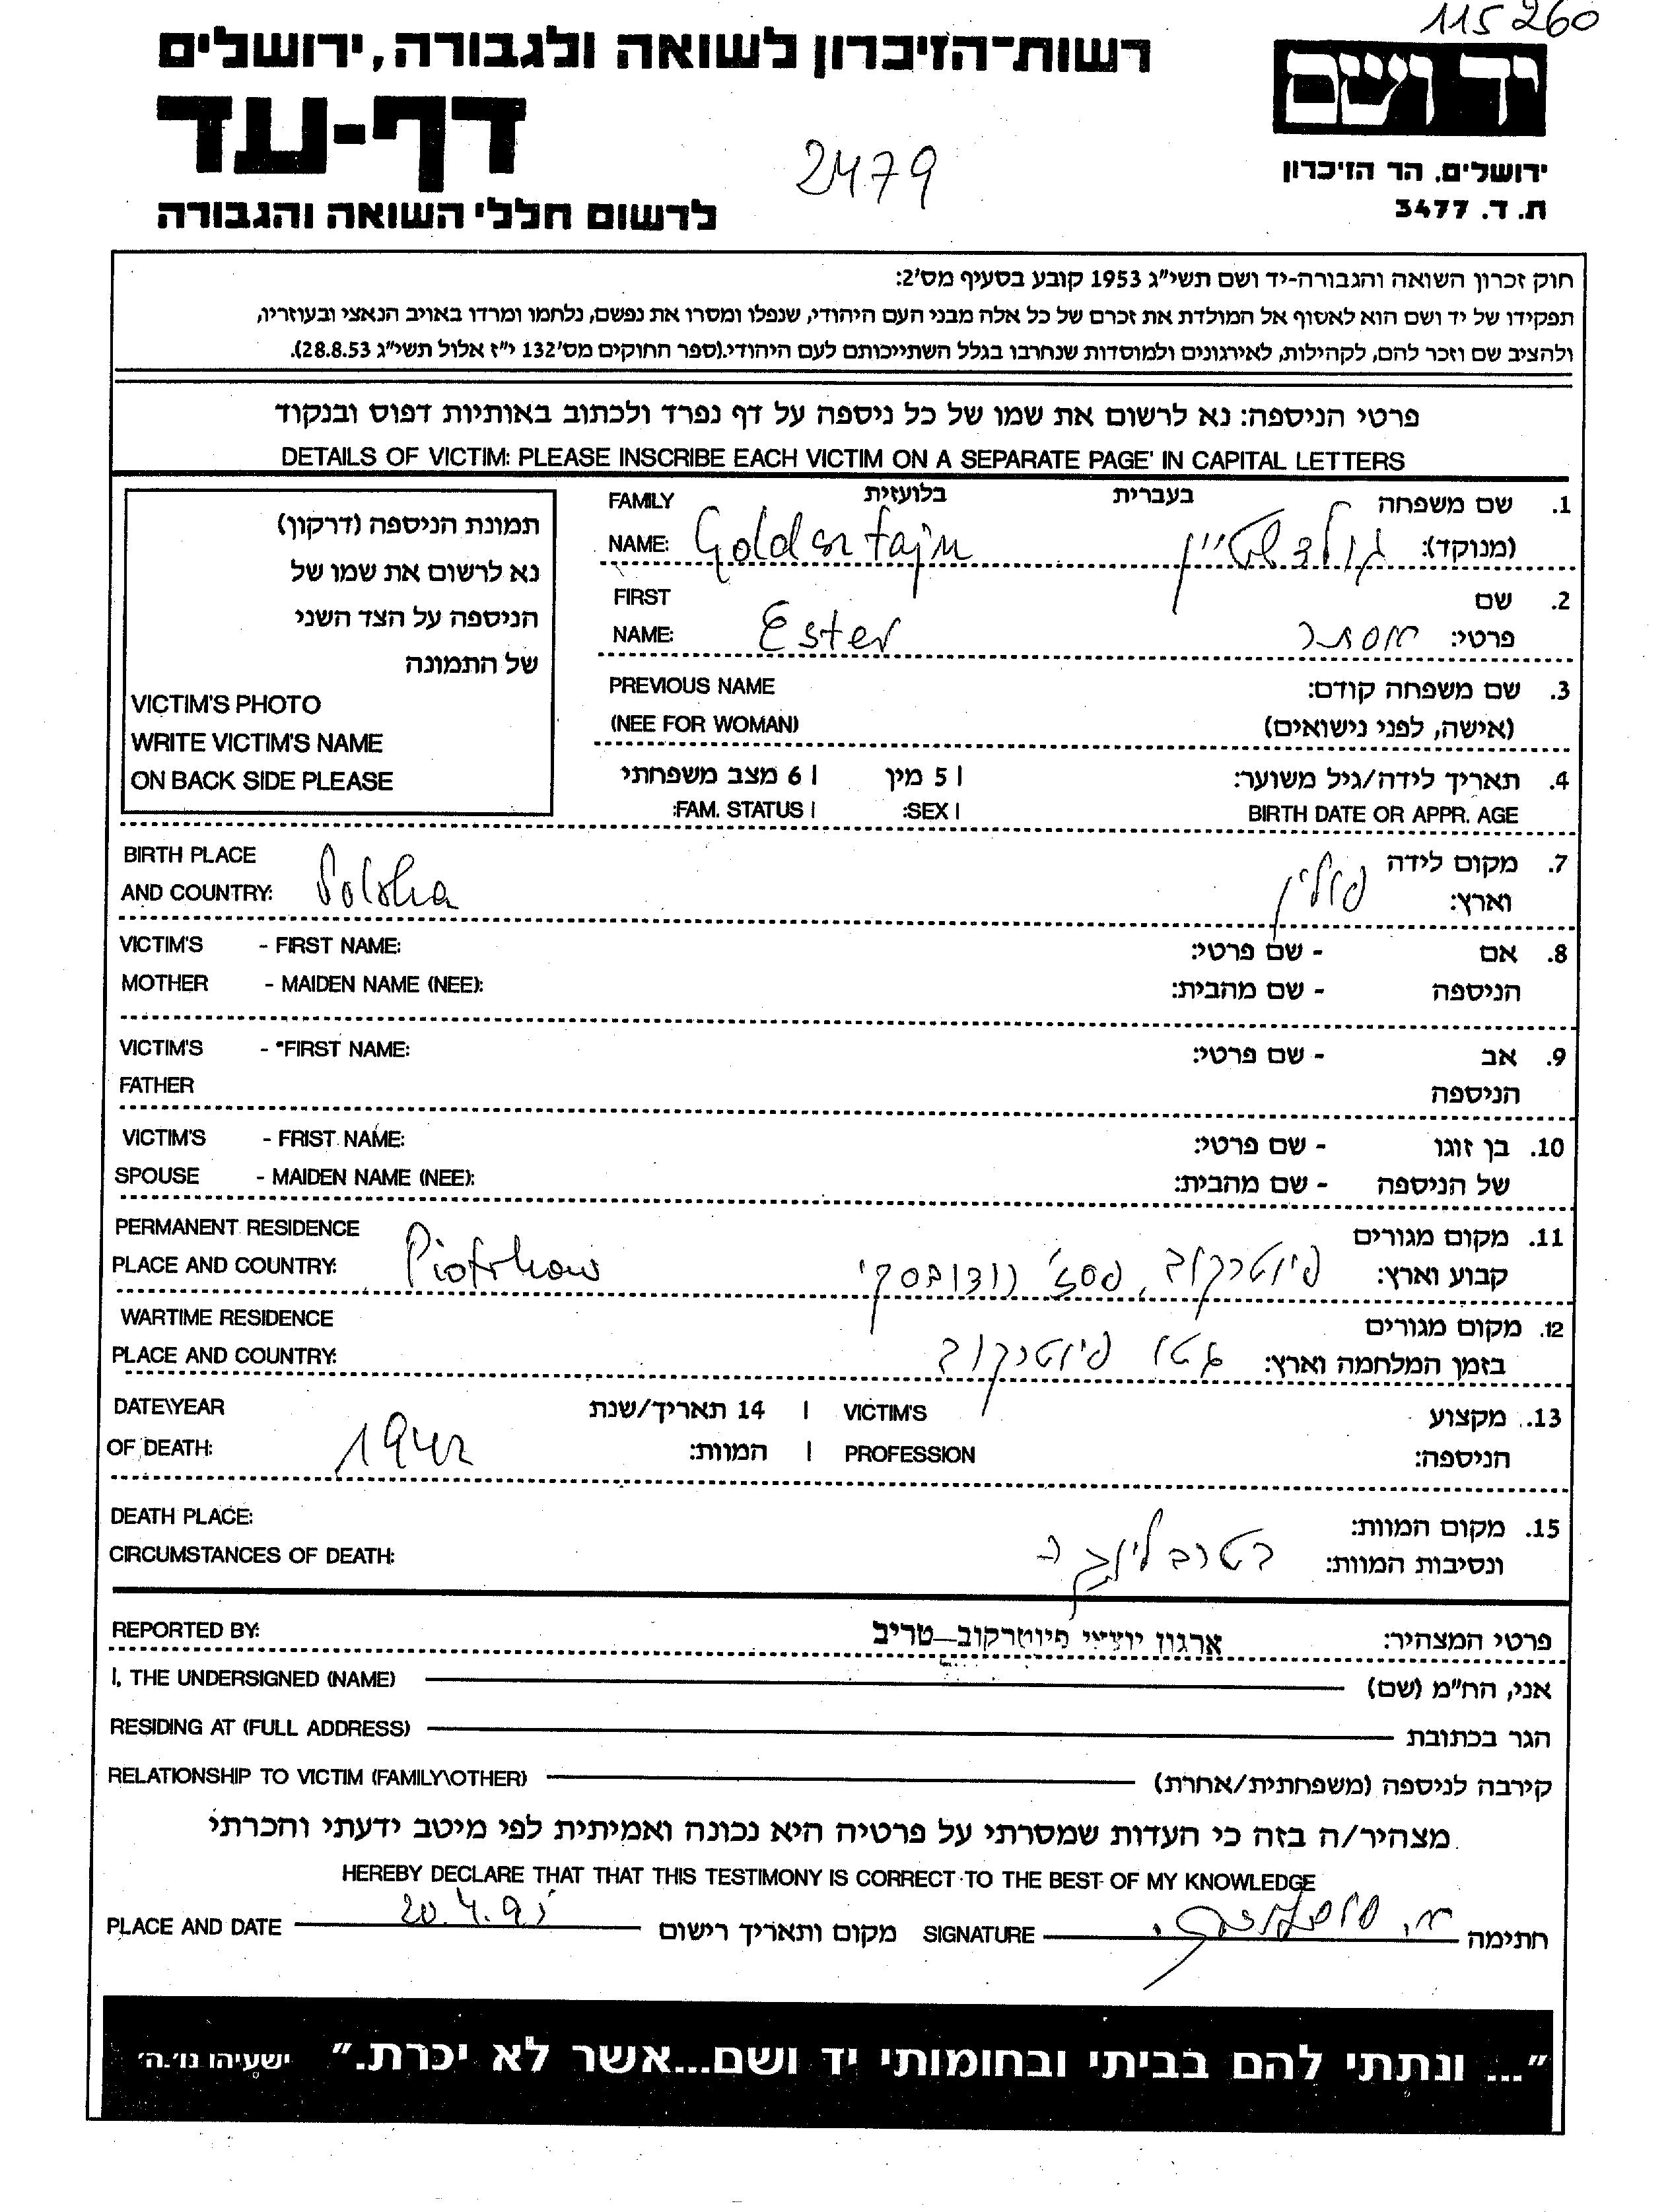 115260
רשות-הזיכרון לשואה ולגבורה, ירושלים
יד ושם
דף-עד
2479
ירושלים. הר הזיכרון
ת. ד. 3477
לרשום חללי השואה והגבורה
חוק זכרון השואה והגבורה-יד ושם תשי"ג 1953 קובע בסעיף מס'2:
תפקידו של יד ושם הוא לאסוף אל המולדת את זכרם של כל אלה מבני העם היהודי, שנפלו ומסרו את נפשם, נלחמו ומרדו באויב הנאצי ובעוזריו,
ולהציב שם וזכר להם, לקהילות, לאירגונים ולמוסדות שנחרבו בגלל השתייכותם לעם היהודי.(ספר החוקים מס'132 י"ז אלול תשי"ג 28.8.53).
פרטי הניספה: נא לרשום את שמו של כל ניספה על דף נפרד ולכתוב באותיות דפוס ובנקוד
DETAILS OF VICTIM: PLEASE INSCRIBE EACH VICTIM ON A SEPARATE PAGE' IN CAPITAL LETTERS
תמונת הניספה (דרקון)
נא לרשום את שמו של
הניספה על הצד השני
של התמונה
VICTIM'S PHOTO
WRITE VICTIM'S NAME
ON BACK SIDE PLEASE
1. שם משפחה בעברית בלועזית FAMILY
(מנוקד): גולדשטיין Goldsztajn NAME:
2. שם FIRST
פרטי: אסתר Ester NAME:
3. שם משפחה קודם: PREVIOUS NAME
(אישה, לפני נישואים) (NEE FOR WOMAN)
4. תאריך לידה/גיל משוער: | 5 מין | 6 מצב משפחתי
BIRTH DATE OR APPR. AGE | SEX: | FAM. STATUS:
7. מקום לידה BIRTH PLACE
וארץ: פולין Polska AND COUNTRY:
8. אם - שם פרטי: VICTIM'S - FIRST NAME:
הניספה - שם מהבית: MOTHER - MAIDEN NAME (NEE):
9. אב - שם פרטי: VICTIM'S - "FIRST NAME:
הניספה FATHER
10. בן זוגו - שם פרטי: VICTIM'S - FRIST NAME:
של הניספה - שם מהבית: SPOUSE - MAIDEN NAME (NEE):
11. מקום מגורים PERMANENT RESIDENCE
קבוע וארץ: פיוטרקוב, פסז' Piotrkow PLACE AND COUNTRY:
12. מקום מגורים WARTIME RESIDENCE
בזמן המלחמה וארץ: גטו פיוטרקוב PLACE AND COUNTRY:
13. מקצוע VICTIM'S | 14 תאריך/שנת DATE\YEAR
הניספה: PROFESSION | המוות: 1942 OF DEATH:
15. מקום המוות: DEATH PLACE:
ונסיבות המוות: בטרבלינקה CIRCUMSTANCES OF DEATH:
פרטי המצהיר: ארגון יוצאי פיוטרקוב-טריב REPORTED BY:
אני, הח"מ (שם) I, THE UNDERSIGNED (NAME)
הגר בכתובת RESIDING AT (FULL ADDRESS)
קירבה לניספה (משפחתית/אחרת) RELATIONSHIP TO VICTIM (FAMILY\OTHER)
מצהיר/ה בזה כי העדות שמסרתי על פרטיה היא נכונה ואמיתית לפי מיטב ידעתי והכרתי.
HEREBY DECLARE THAT THAT THIS TESTIMONY IS CORRECT TO THE BEST OF MY KNOWLEDGE
חתימה SIGNATURE מקום ותאריך רישום 20.4.95 PLACE AND DATE
"... ונתתי להם בביתי ובחומותי יד ושם...אשר לא יכרת." ישעיהו נו'.ה'